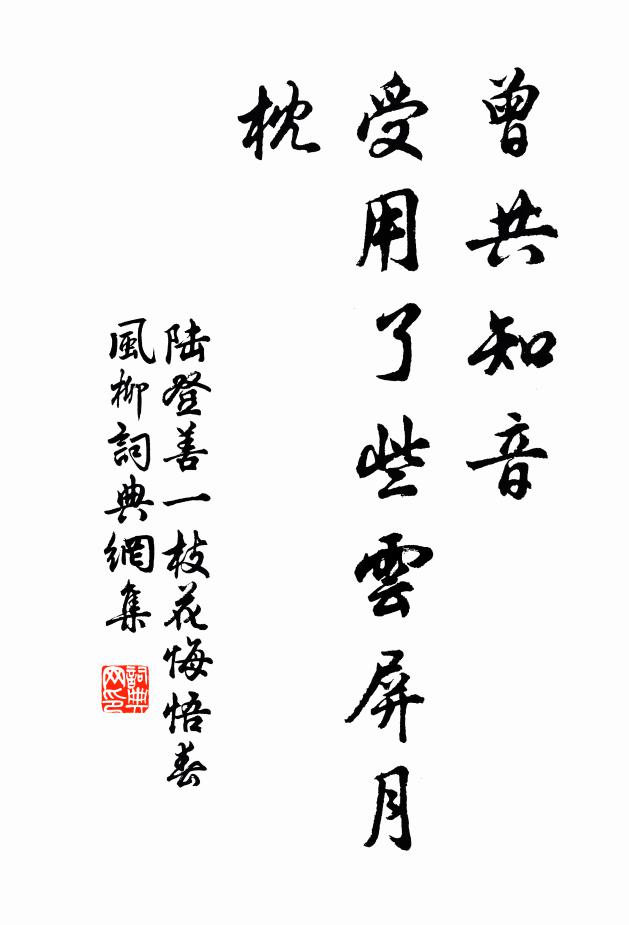 曾共知音
受用了些雲屏月
枕
陆登善一枝花悔悟春
風柳詞典網集
詞典
网印